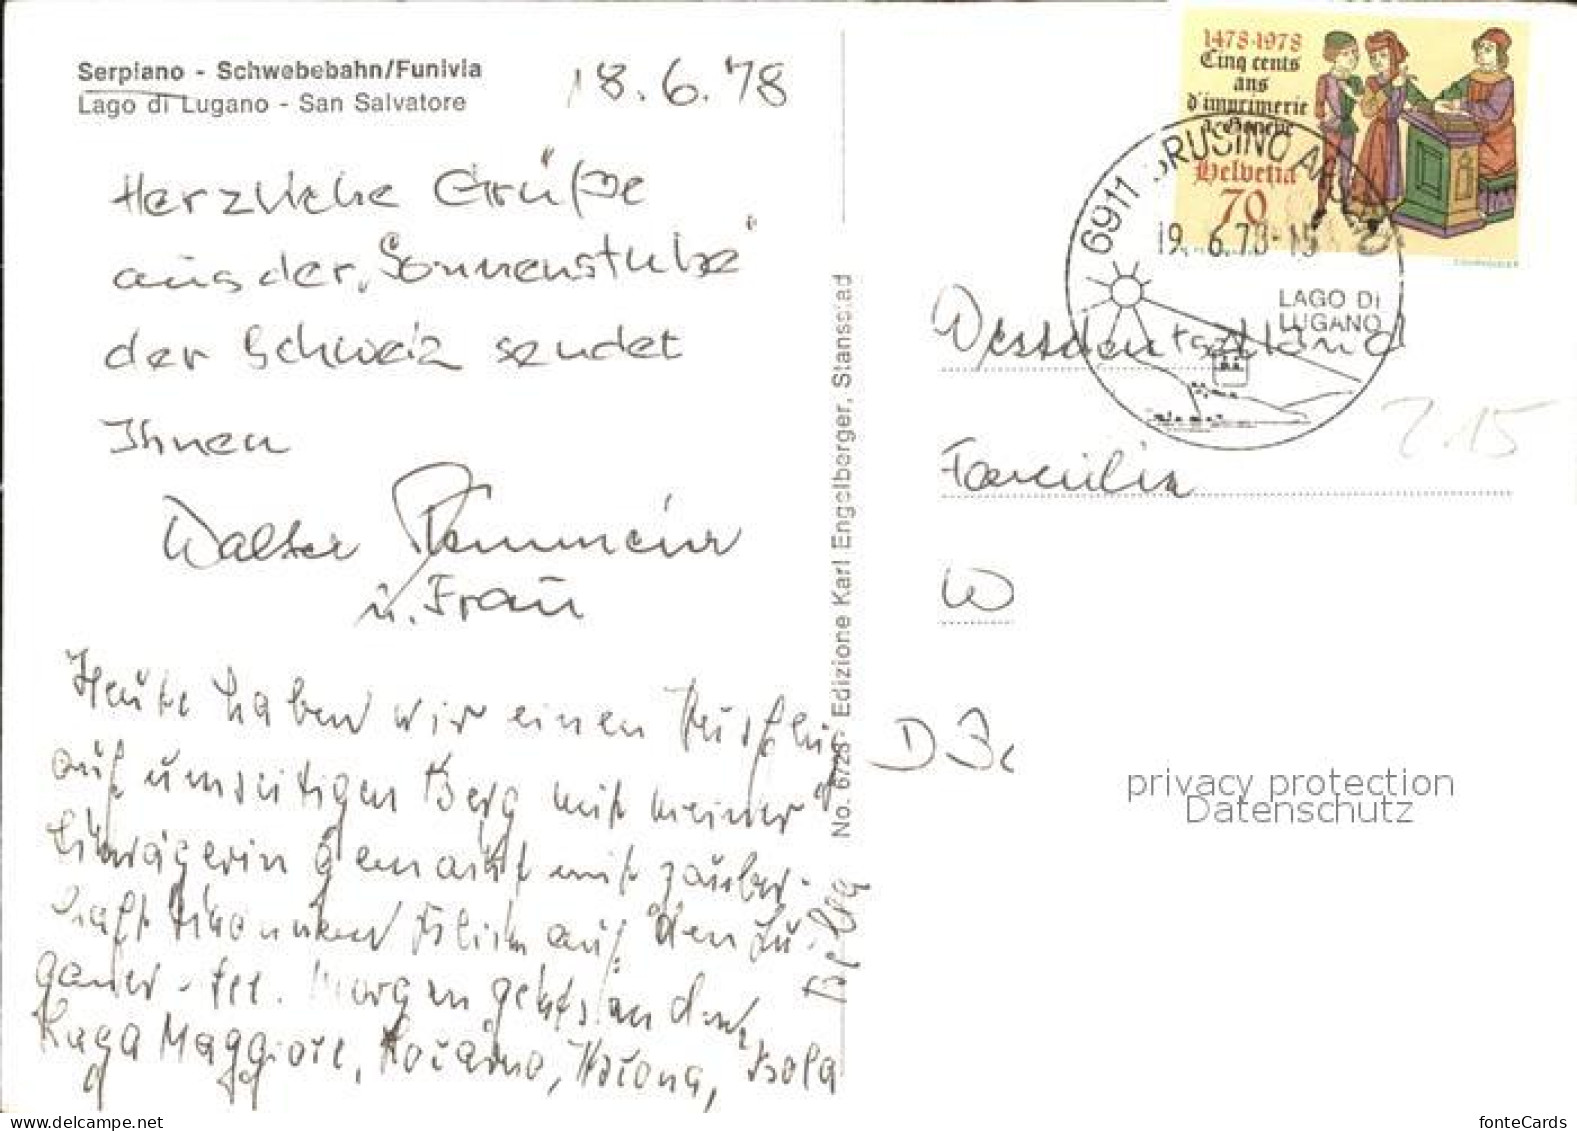 Serpiano - Schwebebahn/Funivia
Lago di Lugano - San Salvatore
18.6.78
Herzliche Grüße
aus der „Sonnenstube"
der Schweiz sendet
Ihnen
Walter
u. Frau
Heute haben wir einen Ausflug
auf umseitigen Berg mit meiner
gemacht mit zauber-
haft Blick auf den Lu-
ganer-See. Morgen geht's an den
Lago Maggiore, Locarno, Ascona, Isola
Bella
No. 6728 - Edizione Karl Engelberger, Stansstad
1478-1978
Cinq cents
ans
d'imprimerie
à Genève
Helvetia
70
6911 BRUSINO
19.6.78-15
LAGO DI
LUGANO
Westdeutschland
Familie
W
D
2.15
privacy protection
Datenschutz
www.delcampe.net
fonteCards